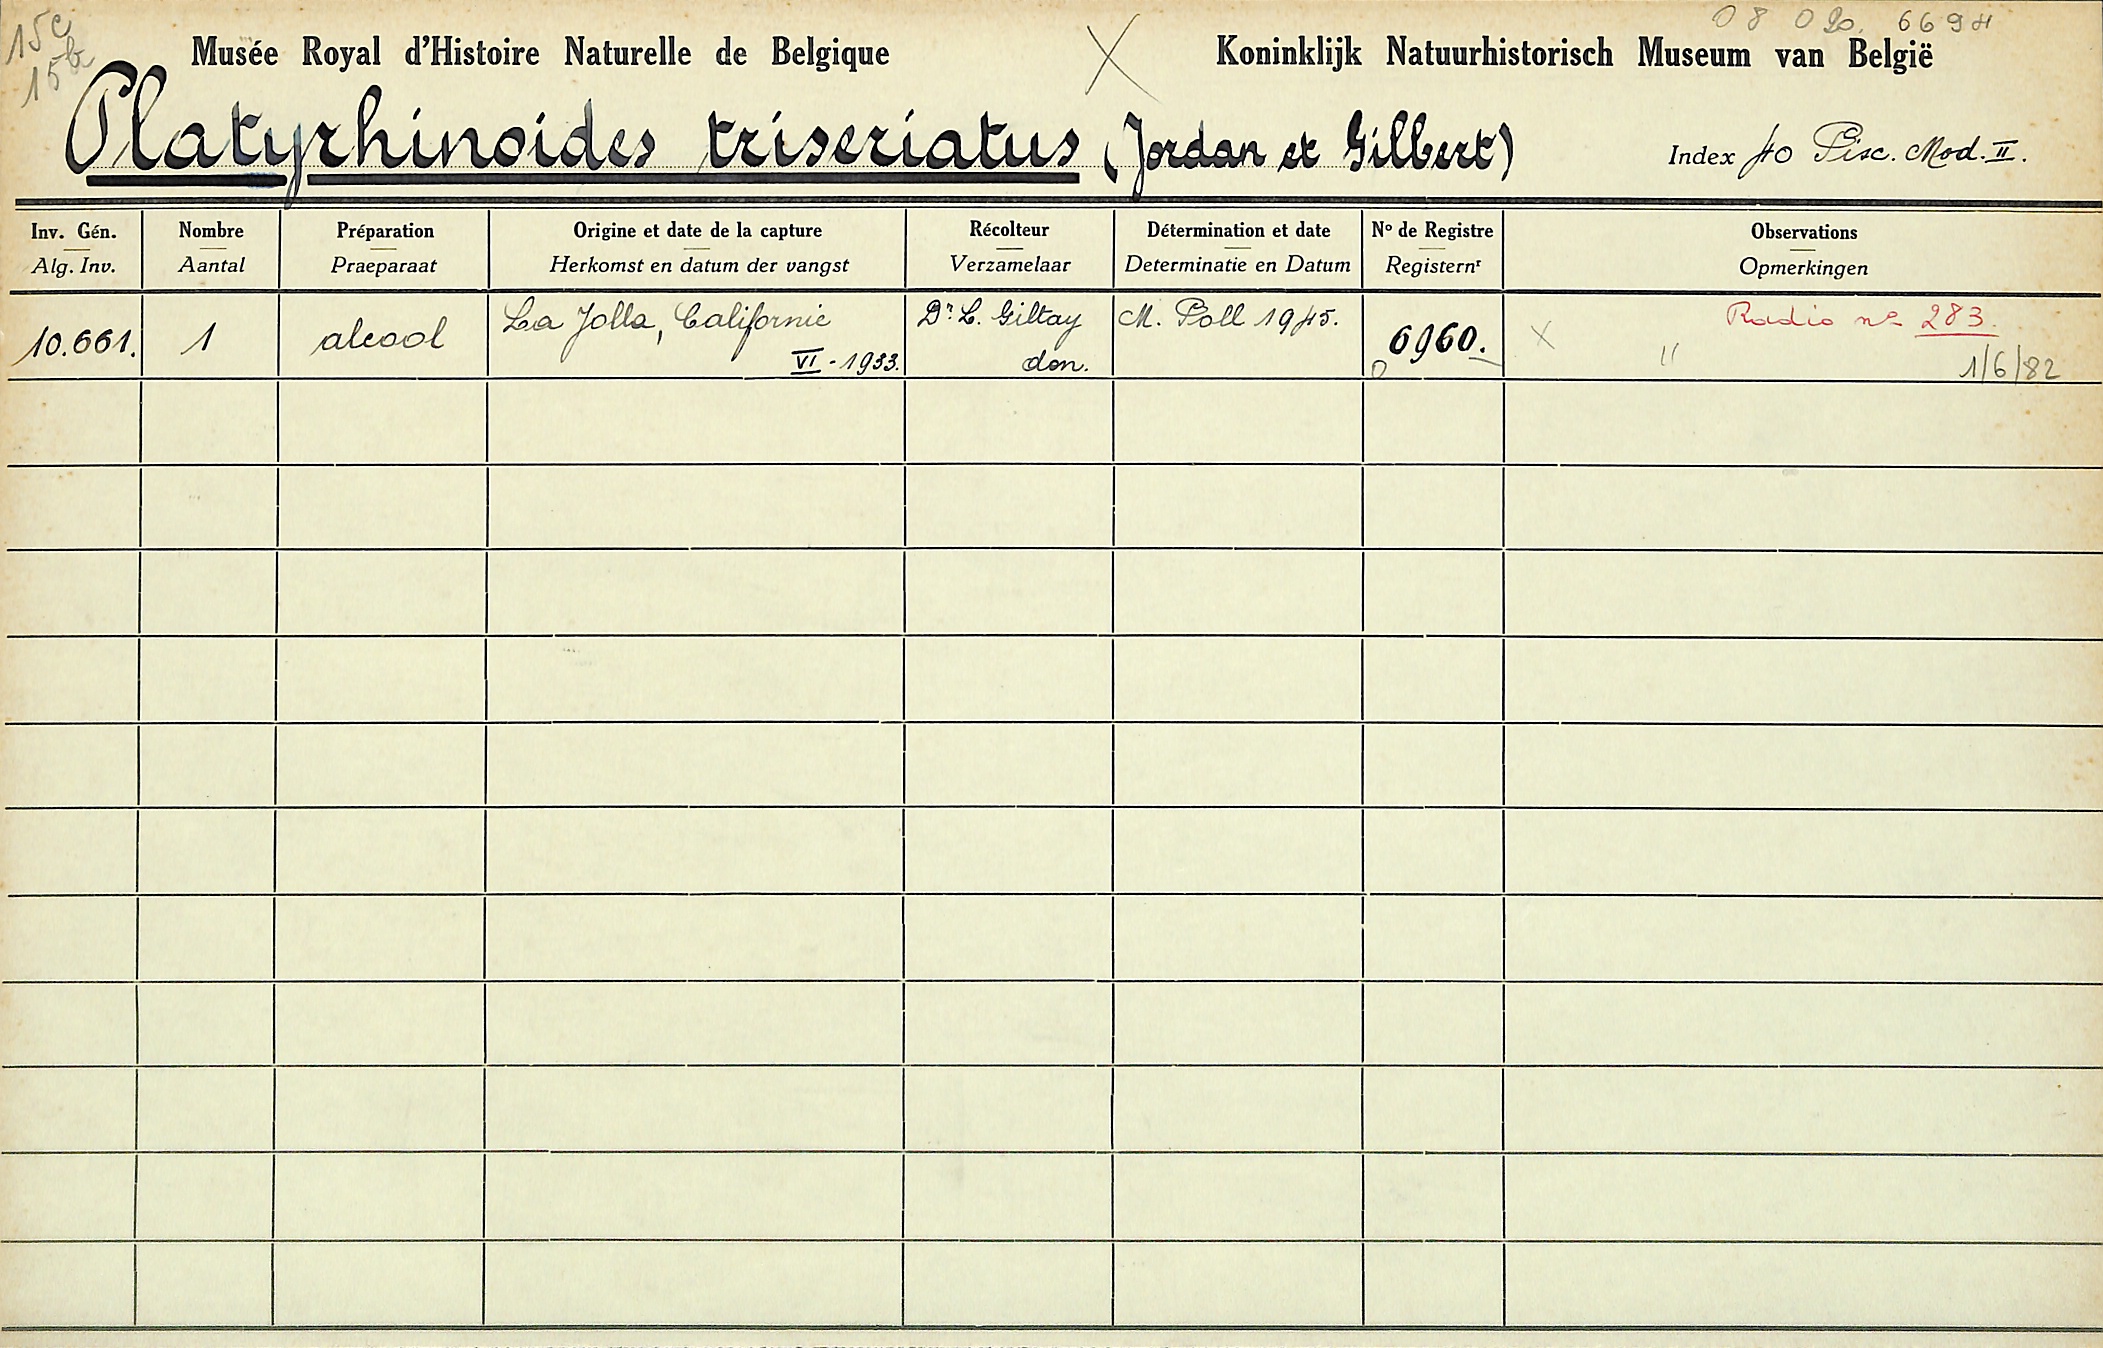 15c
15b
08 020. 6694
Musée Royal d'Histoire Naturelle de Belgique
Koninklijk Natuurhistorisch Museum van België
Platyrhinoides triseriatus (Jordan et Gilbert)
Index 40 Pisc. Mod. II.
Inv. Gén. Nombre Préparation Origine et date de la capture Récolteur Détermination et date No de Registre Observations
Alg. Inv. Aantal Praeparaat Herkomst en datum der vangst Verzamelaar Determinatie en Datum Registernr Opmerkingen
10.661. 1 alcool La Jolla, Californie Dr L. Giltay M. Poll 1945. 6960. X Radio no 283.
VI - 1933. don. " 1/6/82